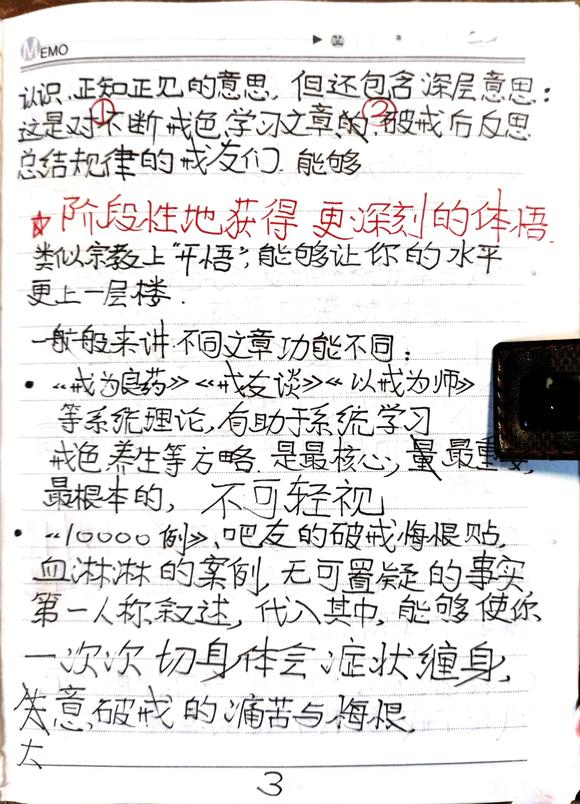 MEMO
认识、正知正见的意思，但还包含深层意思：
这是对①不断戒色学习文章的、②破戒后反思
总结规律的戒友们，能够
☆阶段性地获得更深刻的体悟，
类似宗教上“开悟”，能够让你的水平
更上一层楼。
一般般来讲，不同文章功能不同：
•《戒为良药》《戒友谈》《以戒为师》
等系统理论，有助于系统学习
戒色养生等方略，是最核心，最重要，
最根本的，不可轻视
•《10000例》、吧友的破戒悔恨贴，
血淋淋的案例，无可置疑的事实，
第一人称叙述，代入其中，能够使你
一次次切身体会症状缠身，
大意破戒的痛苦与悔恨。
3